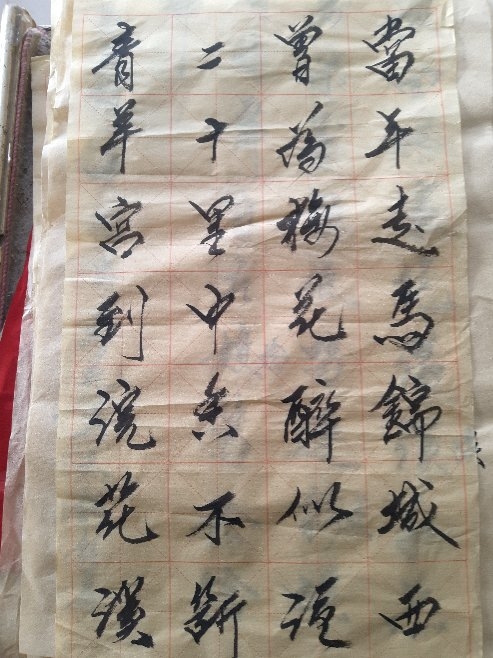 當年走馬錦城西
曾為梅花醉似泥
二十里中香不斷
青羊宮到浣花溪